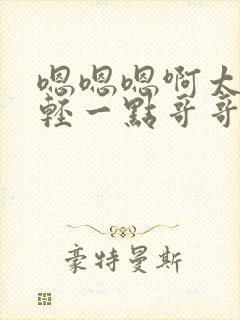 嗯嗯嗯啊太
輕一點哥哥
豪特曼斯